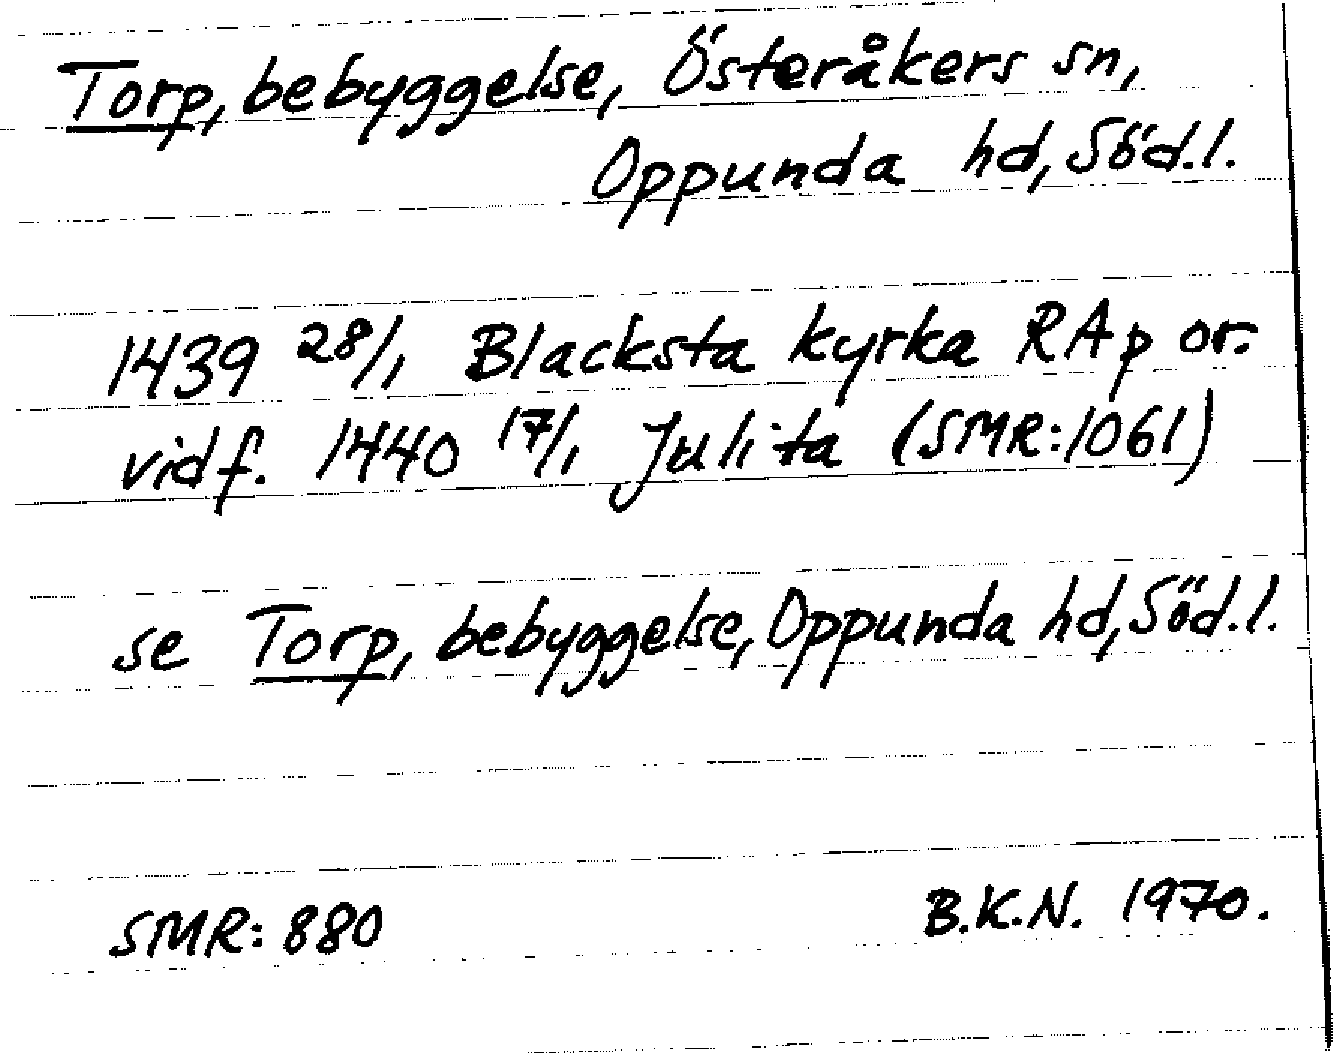 Torp, bebyggelse, Österåkers sn,
Oppunda hd, Söd.l.
1439 28/1 Blacksta kyrka RAp or.
vidf. 1440 17/1 Julita (SMR:1061)
se Torp, bebyggelse, Oppunda hd, Söd.l.
SMR: 880 B.K.N. 1970.